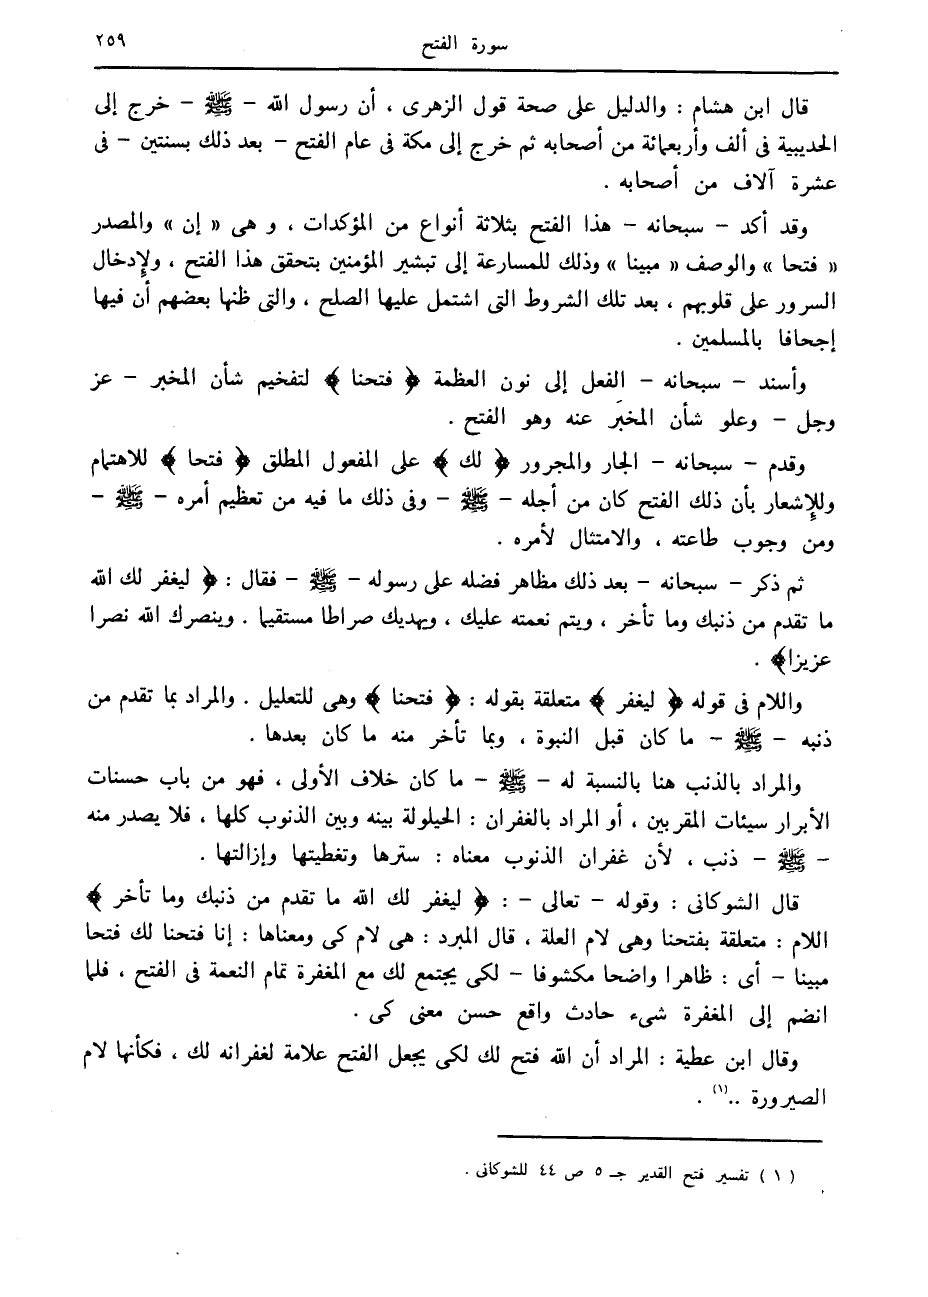 سورة الفتح ٢٥٩
قال ابن هشام : والدليل على صحة قول الزهرى ، أن رسول الله – ﷺ – خرج إلى
الحديبية فى ألف وأربعمائة من أصحابه ثم خرج إلى مكة فى عام الفتح – بعد ذلك بسنتين – فى
عشرة آلاف من أصحابه .
وقد أكد – سبحانه – هذا الفتح بثلاثة أنواع من المؤكدات ، و هى « إن » والمصدر
« فتحا » والوصف « مبينا » وذلك للمسارعة إلى تبشير المؤمنين بتحقق هذا الفتح ، ولإدخال
السرور على قلوبهم ، بعد تلك الشروط التى اشتمل عليها الصلح ، والتى ظنها بعضهم أن فيها
إجحافا بالمسلمين .
وأسند – سبحانه – الفعل إلى نون العظمة ﴿ فتحنا ﴾ لتفخيم شأن المخبر – عز
وجل – وعلو شأن المخبَر عنه وهو الفتح .
وقدم – سبحانه – الجار والمجرور ﴿ لك ﴾ على المفعول المطلق ﴿ فتحا ﴾ للاهتمام
وللإشعار بأن ذلك الفتح كان من أجله – ﷺ – وفى ذلك ما فيه من تعظيم أمره – ﷺ –
ومن وجوب طاعته ، والامتثال لأمره .
ثم ذكر – سبحانه – بعد ذلك مظاهر فضله على رسوله – ﷺ – فقال : ﴿ ليغفر لك الله
ما تقدم من ذنبك وما تأخر ، ويتم نعمته عليك ، ويهديك صراطا مستقيما . وينصرك الله نصرا
عزيزا﴾ .
واللام فى قوله ﴿ ليغفر ﴾ متعلقة بقوله : ﴿ فتحنا ﴾ وهى للتعليل . والمراد بما تقدم من
ذنبه – ﷺ – ما كان قبل النبوة ، وبما تأخر منه ما كان بعدها .
والمراد بالذنب هنا بالنسبة له – ﷺ – ما كان خلاف الأولى ، فهو من باب حسنات
الأبرار سيئات المقربين ، أو المراد بالغفران : الحيلولة بينه وبين الذنوب كلها ، فلا يصدر منه
– ﷺ – ذنب ، لأن غفران الذنوب معناه : سترها وتغطيتها وإزالتها .
قال الشوكانى : وقوله – تعالى – : ﴿ ليغفر لك الله ما تقدم من ذنبك وما تأخر ﴾
اللام : متعلقة بفتحنا وهى لام العلة ، قال المبرد : هى لام كى ومعناها : إنا فتحنا لك فتحا
مبينا – أى : ظاهرا واضحا مكشوفا – لكى يجتمع لك مع المغفرة تمام النعمة فى الفتح ، فلما
انضم إلى المغفرة شىء حادث واقع حسن معنى كى .
وقال ابن عطية : المراد أن الله فتح لك لكى يجعل الفتح علامة لغفرانه لك ، فكأنها لام
الصيرورة ..(١) .
( ١ ) تفسير فتح القدير جـ ٥ ص ٤٤ للشوكانى .